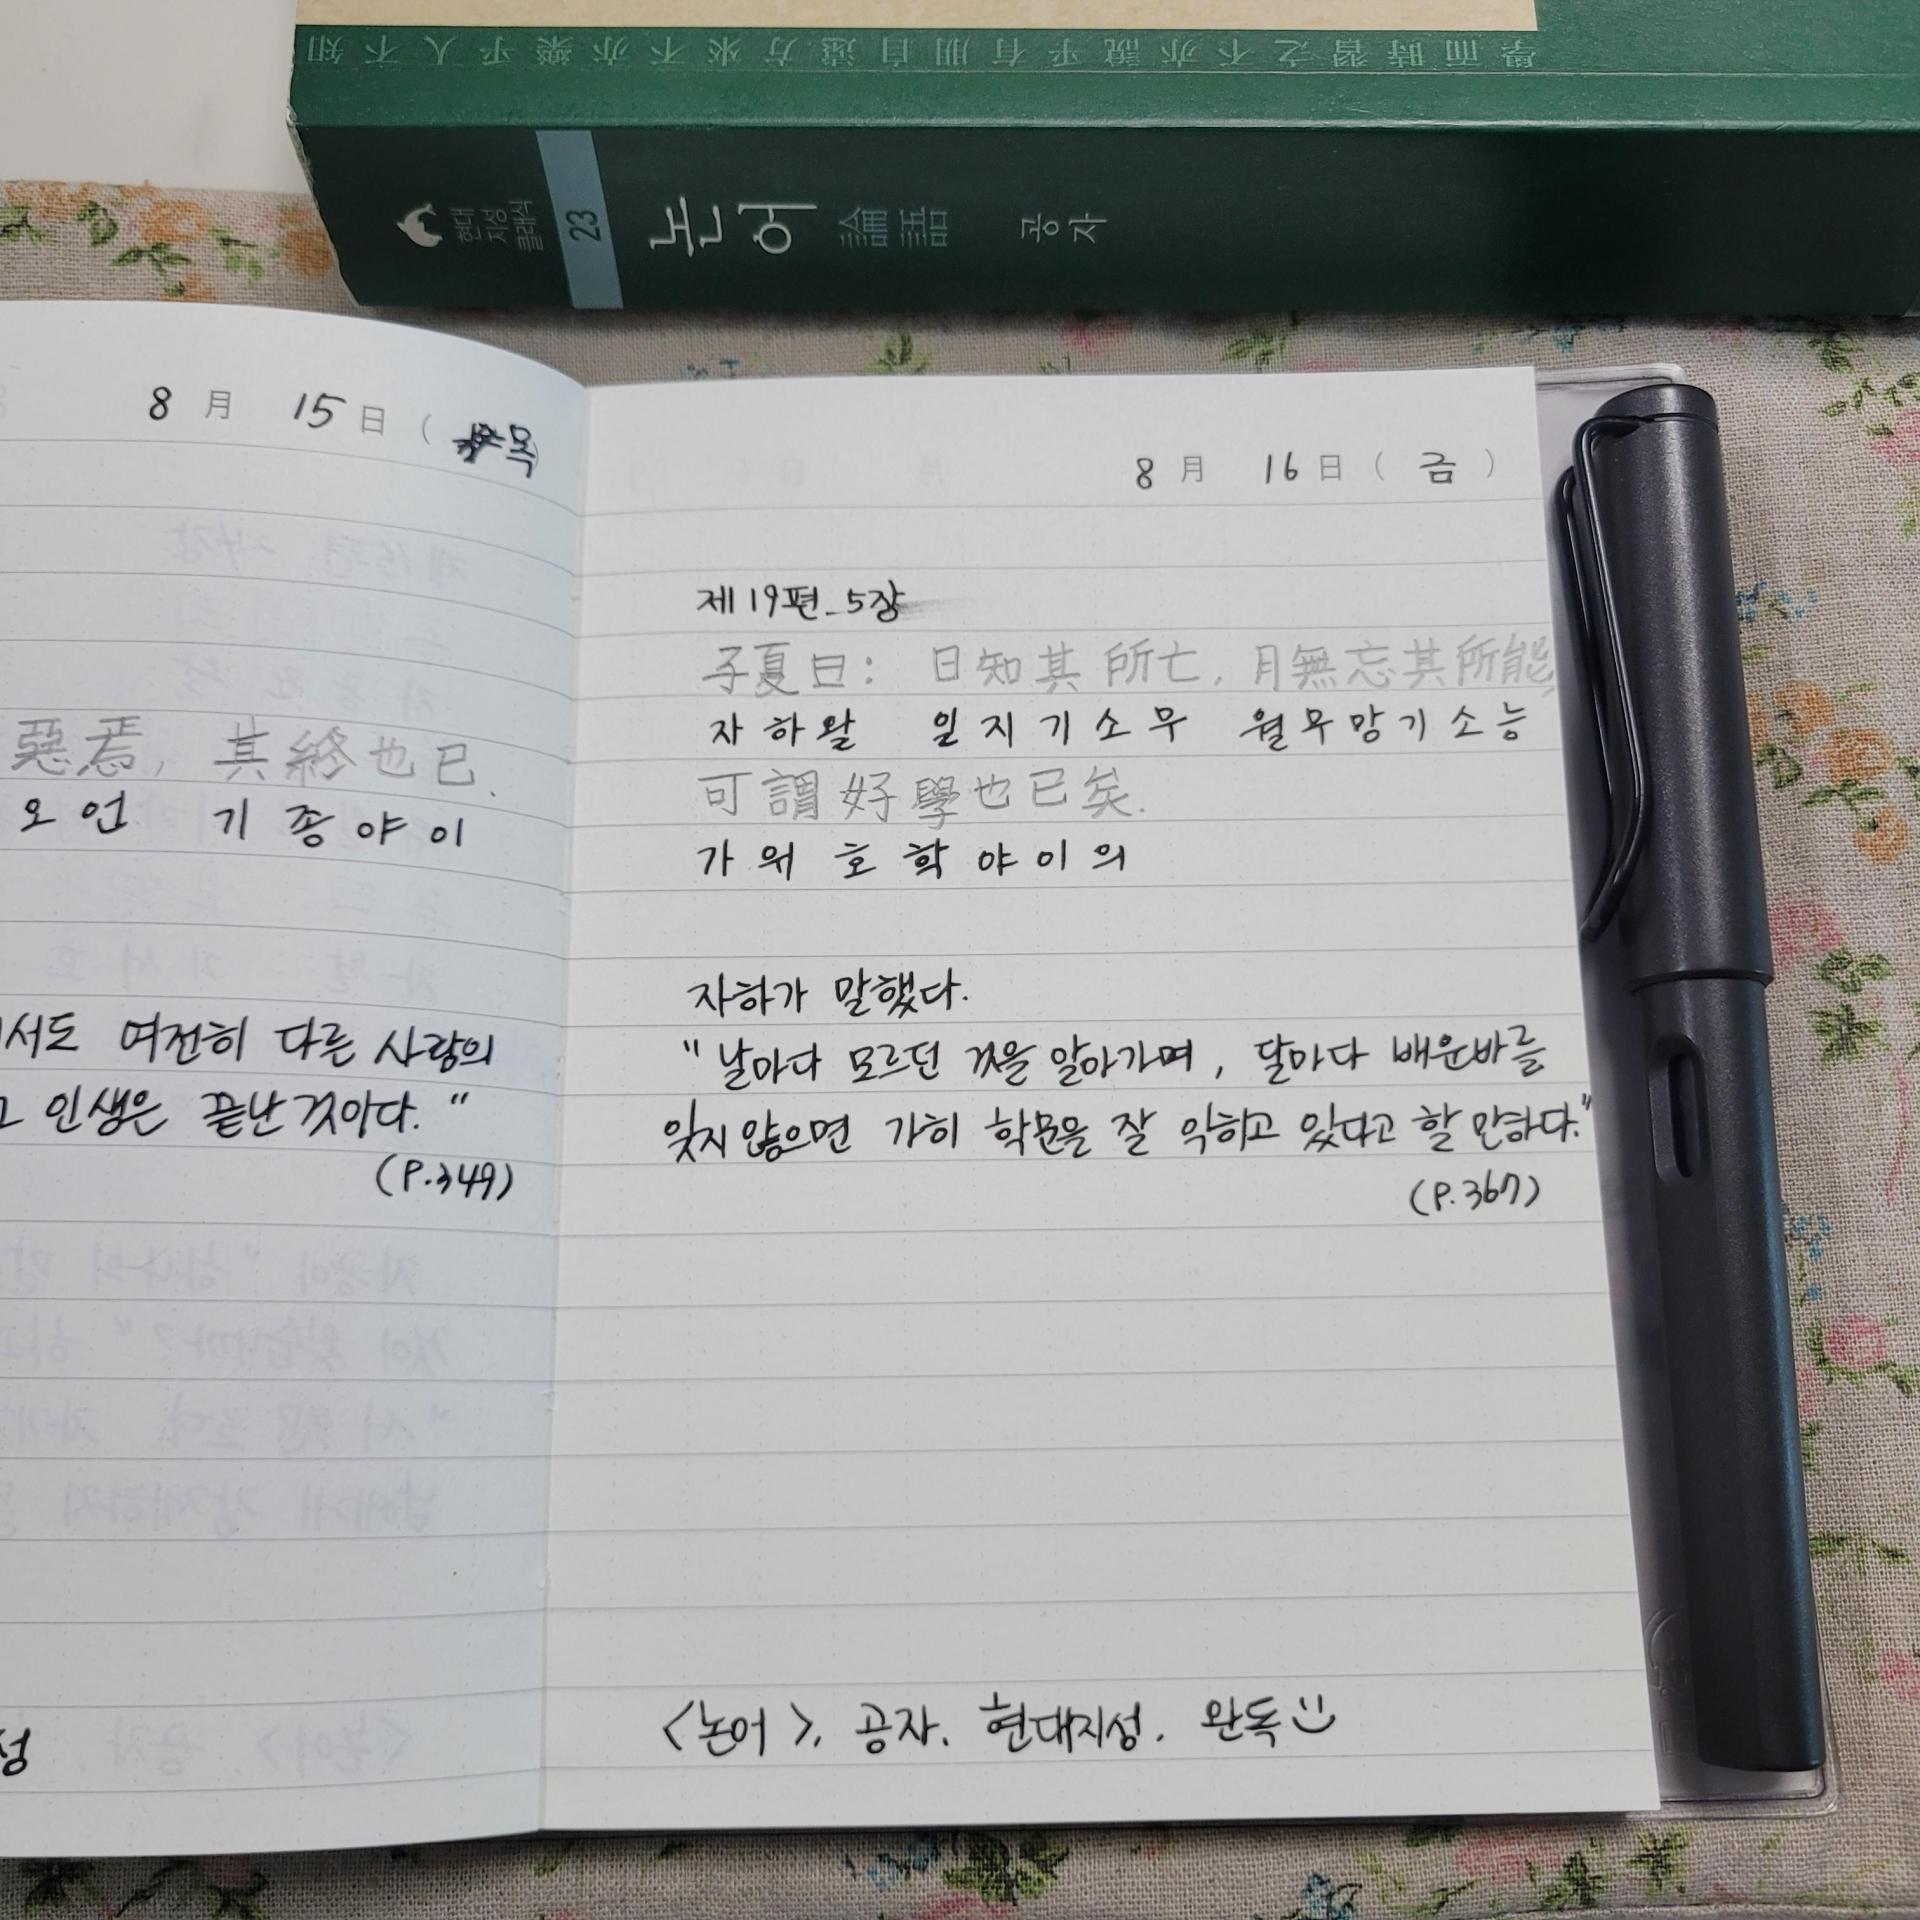 學而時習之不亦說乎有朋自遠方來不亦樂乎人不知
현대
지성
클래식
23
논어 論語 공자
8 月 15 日 ( 목)
惡焉, 其終也已.
오언 기종야이
서도 여전히 다른 사람의
인생은 끝난것이다."
(P.349)
8 月 16 日 ( 금 )
제19편_5장
子夏曰: 日知其所亡, 月無忘其所能,
자하왈 일지기소무 월무망기소능
可謂好學也已矣.
가위호학야이의
자하가 말했다.
"날마다 모르던 것을 알아가며, 달마다 배운바를
잊지 않으면 가히 학문을 잘 익히고 있다고 할 만하다."
(P.367)
<논어>, 공자. 현대지성. 완독